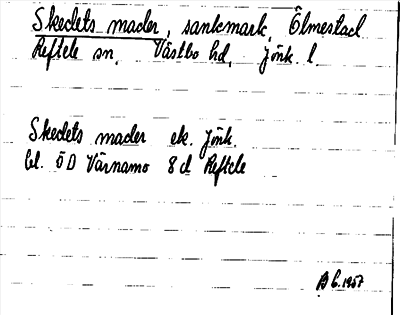 Skedets mader, sankmark, Ölmestad
Reftele sn, Västbo hd, Jönk. l.
Skedets mader ek. Jönk.
bl. ÖD Värnamo 8 d Reftele
1957